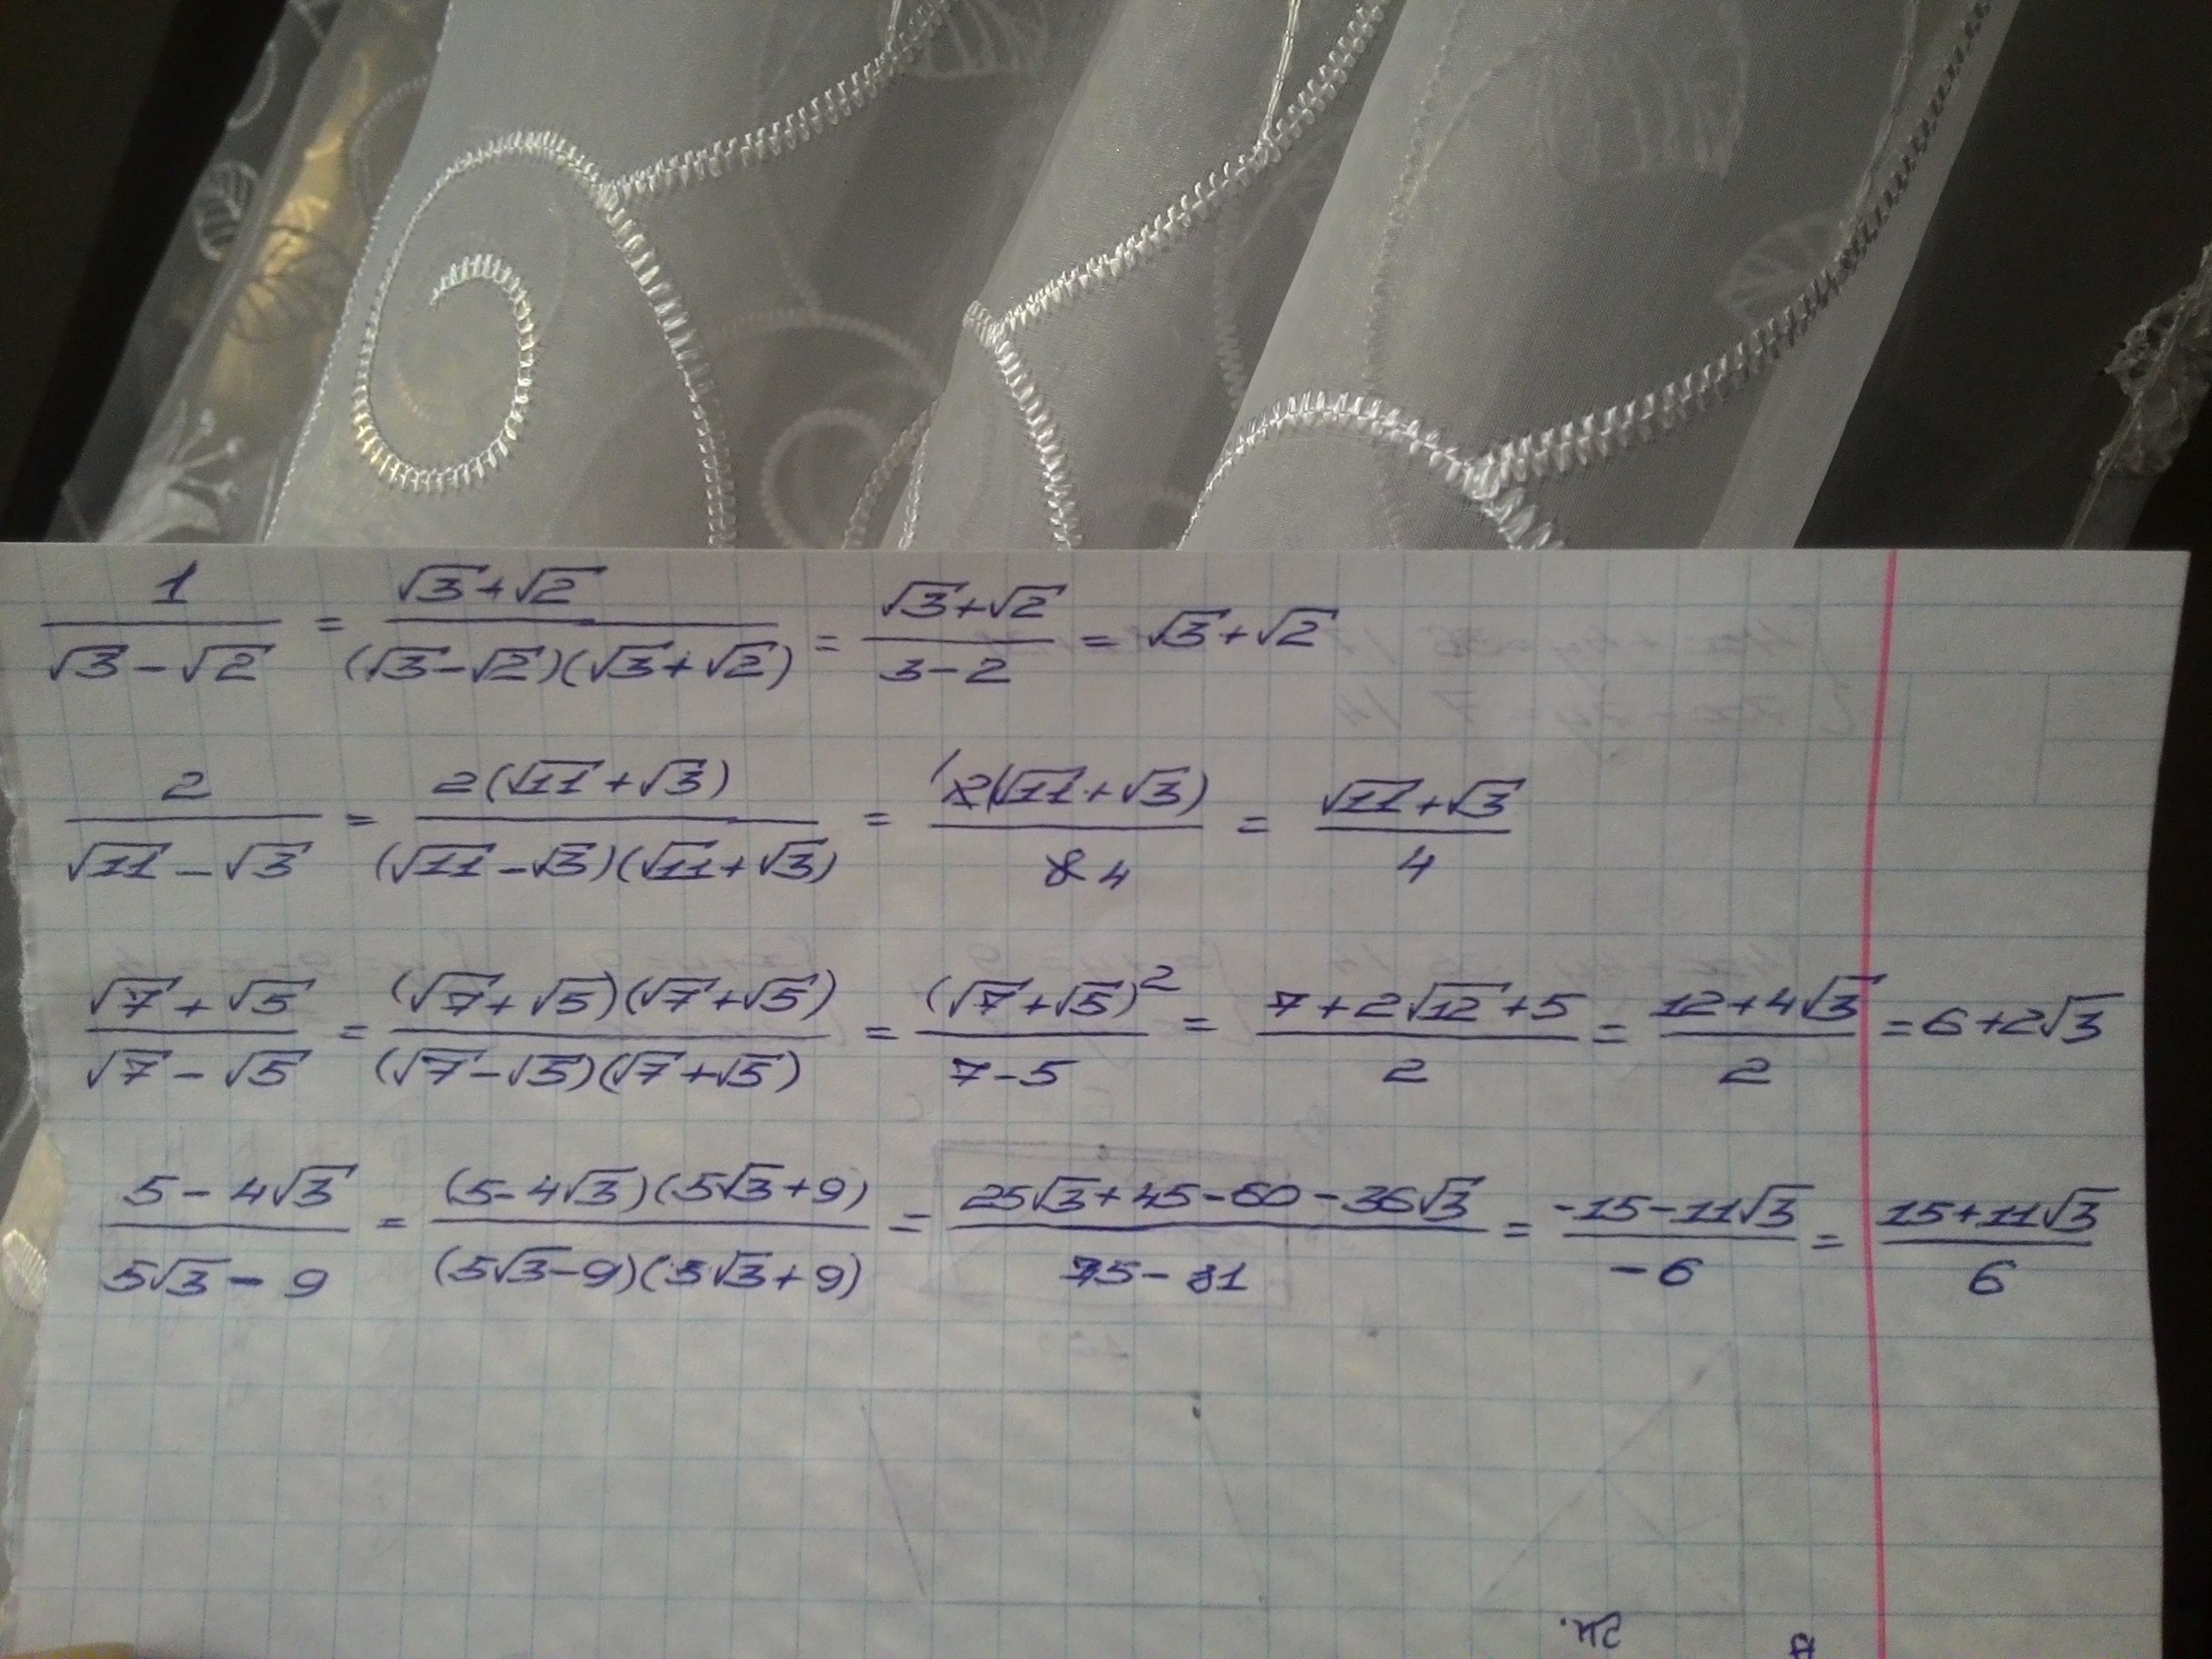 1/(√3 - √2) = (√3 + √2)/((√3 - √2)(√3 + √2)) = (√3 + √2)/(3 - 2) = √3 + √2
2/(√11 - √3) = 2(√11 + √3)/((√11 - √3)(√11 + √3)) = 2(√11 + √3)/8 4 = (√11 + √3)/4
(√7 + √5)/(√7 - √5) = (√7 + √5)(√7 + √5)/((√7 - √5)(√7 + √5)) = (√7 + √5)²/(7 - 5) = (7 + 2√12 + 5)/2 = (12 + 4√3)/2 = 6 + 2√3
(5 - 4√3)/(5√3 - 9) = (5 - 4√3)(5√3 + 9)/((5√3 - 9)(5√3 + 9)) = (25√3 + 45 - 60 - 36√3)/(75 - 81) = (-15 - 11√3)/(-6) = (15 + 11√3)/6